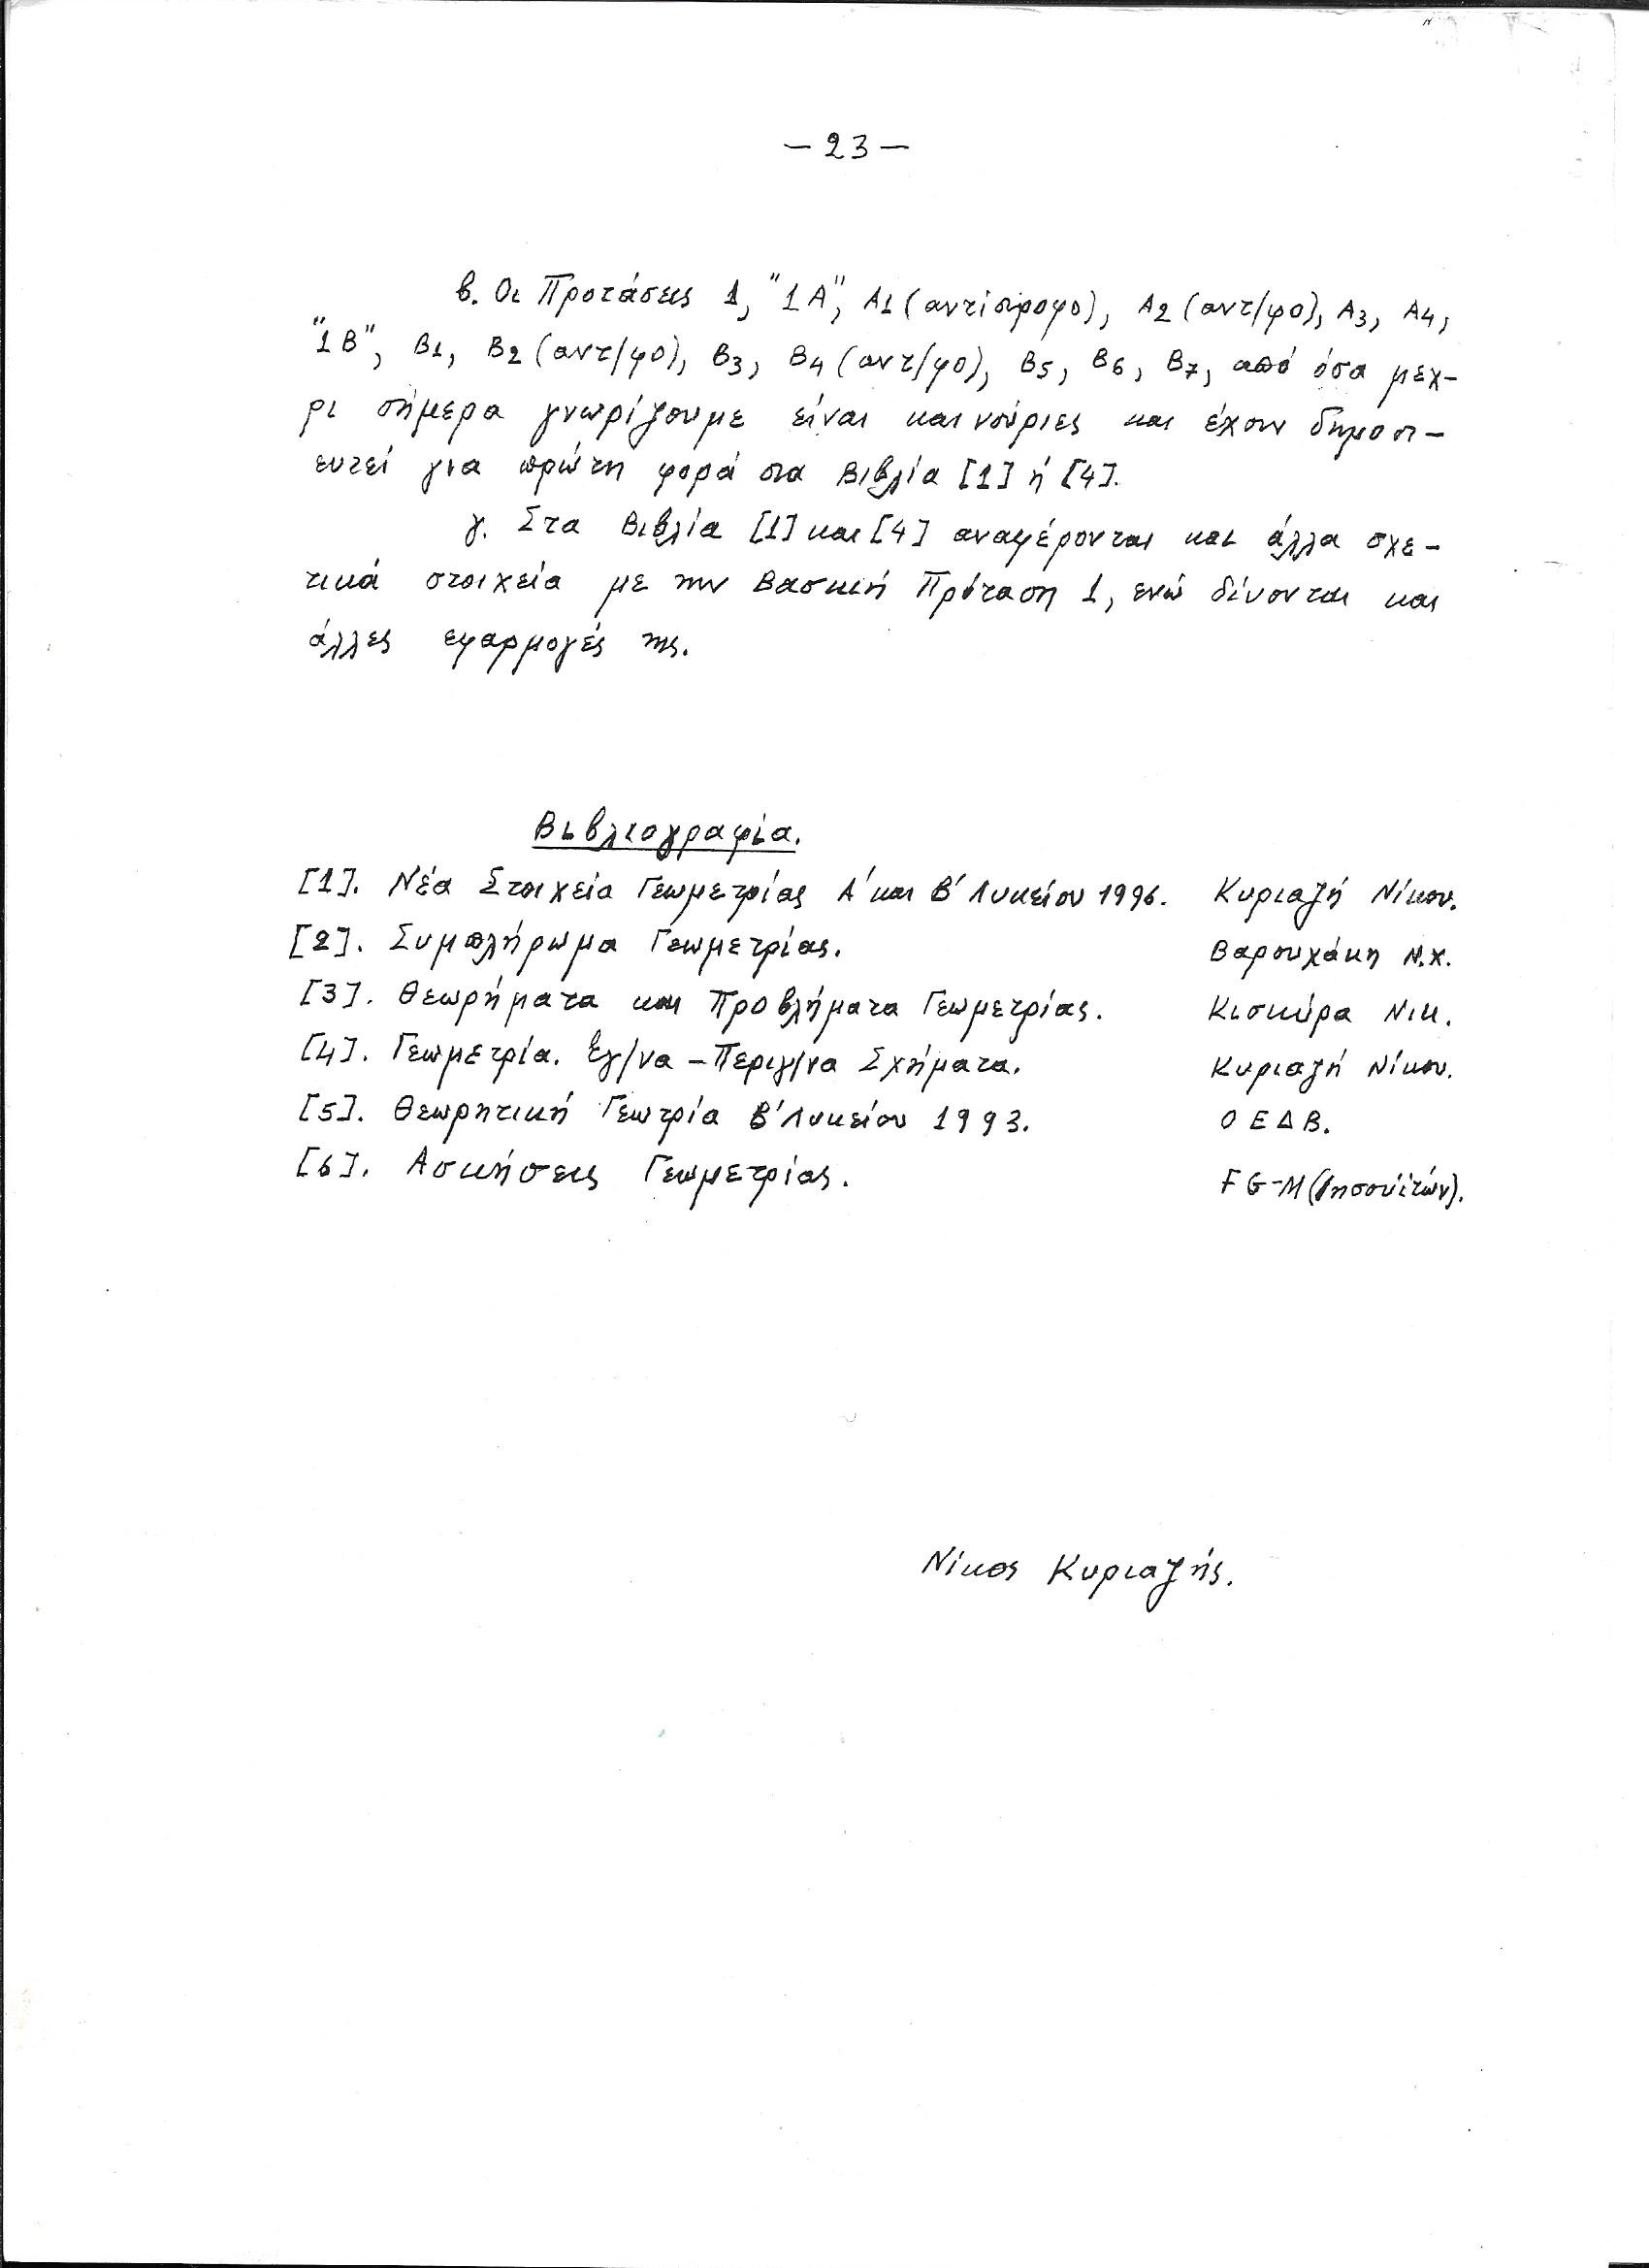 – 23 –
β. Οι Προτάσεις 1, "1Α", Α1 (αντίστροφο), Α2 (αντ/φο), Α3, Α4,
"1Β", Β1, Β2 (αντ/φο), Β3, Β4 (αντ/φο), Β5, Β6, Β7, από όσα μεχ-
ρι σήμερα γνωρίζουμε είναι καινούριες και έχουν δημοσι-
ευτεί για πρώτη φορά στα Βιβλία [1] ή [4].
γ. Στα Βιβλία [1] και [4] αναφέρονται και άλλα σχε-
τικά στοιχεία με την Βασική Πρόταση 1, ενώ δίνονται και
άλλες εφαρμογές της.
Βιβλιογραφία.
[1]. Νέα Στοιχεία Γεωμετρίας Α' και Β' Λυκείου 1996. Κυριαζή Νίκου.
[2]. Συμπλήρωμα Γεωμετρίας. Βαρουχάκη Ν.Χ.
[3]. Θεωρήματα και Προβλήματα Γεωμετρίας. Κισκύρα Νικ.
[4]. Γεωμετρία. Εγ/να – Περιγ/να Σχήματα. Κυριαζή Νίκου.
[5]. Θεωρητική Γεωτρία Β' Λυκείου 1993. ΟΕΔΒ.
[6]. Ασκήσεις Γεωμετρίας. FG-M (Ιησουϊτών).
Νίκος Κυριαζής.